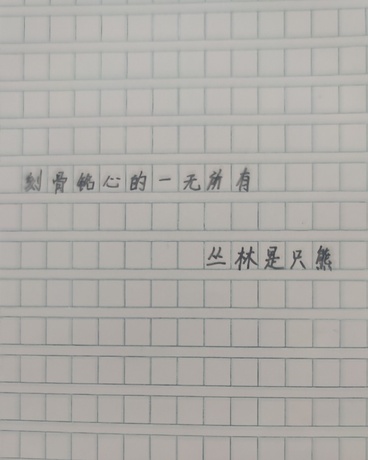 刻骨铭心的一无所有
丛林是只熊